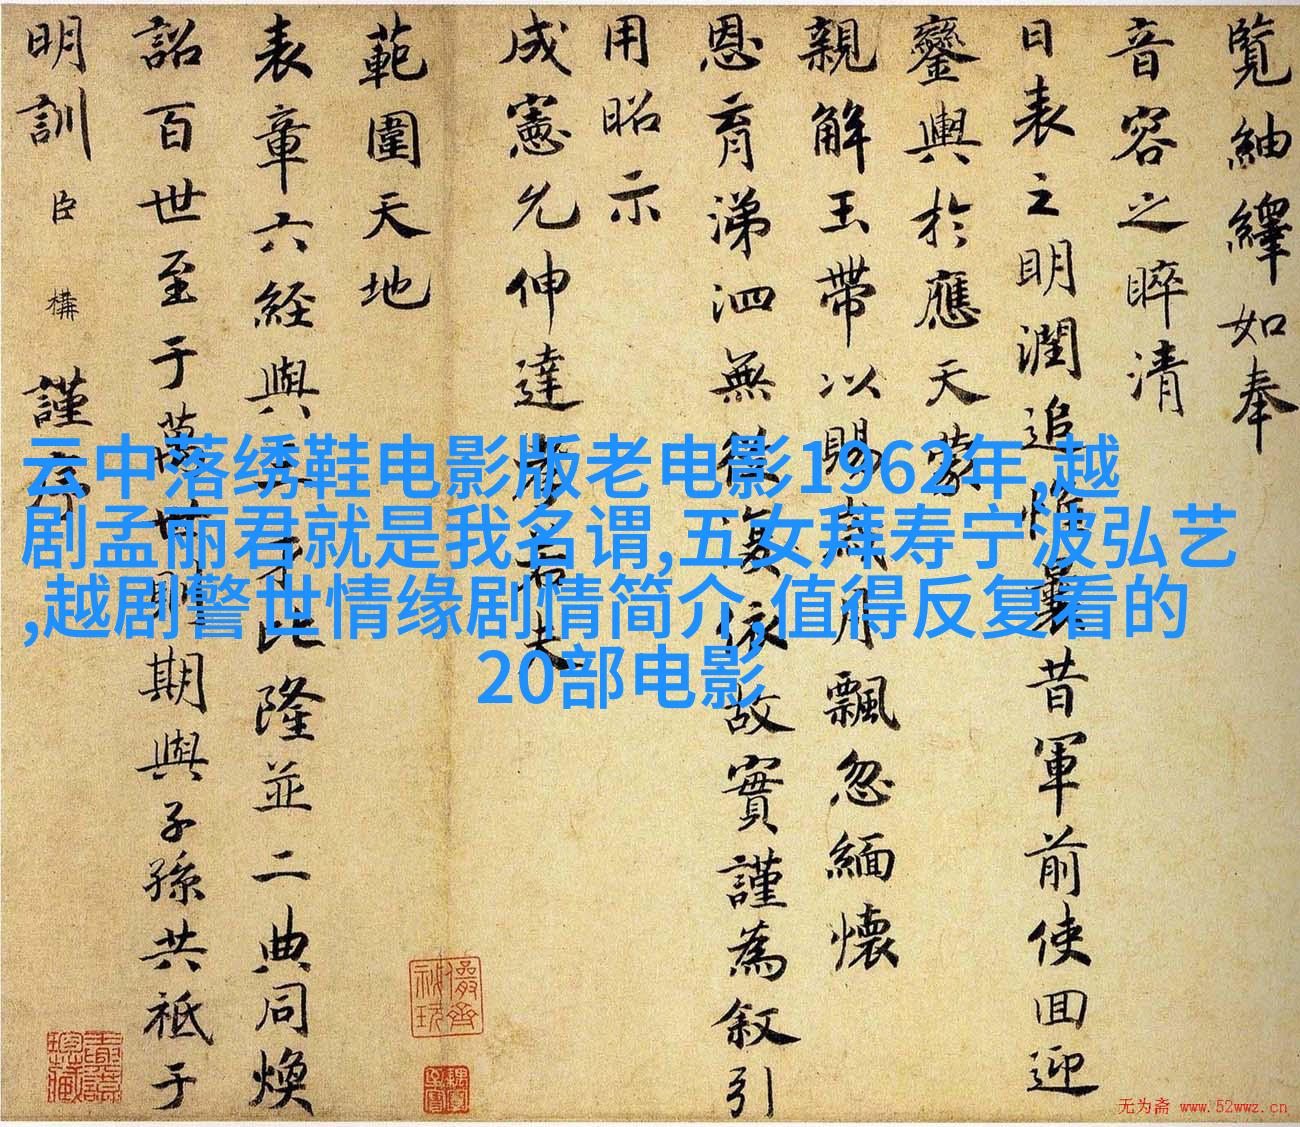 覽紬繹如奉
音容之睟清
日表之明潤追惟曩昔軍前使回迎
鑾輿於應天蒙
親解玉帶以賜歲月飄忽緬懷
恩育涕泗無從復依故實謹為叙引
用昭示
成憲允伸達孝若夫
範圍天地
表章六經與比隆並二典同煥
詔百世至于萬世則期與子孫共祗于
明訓臣構謹序
云中落绣鞋电影版老电影1962年,越
剧孟丽君就是我名谓,五女拜寿宁波弘艺
,越剧警世情缘剧情简介,值得反复看的
20部电影
无为斋 www.52wwz.cn